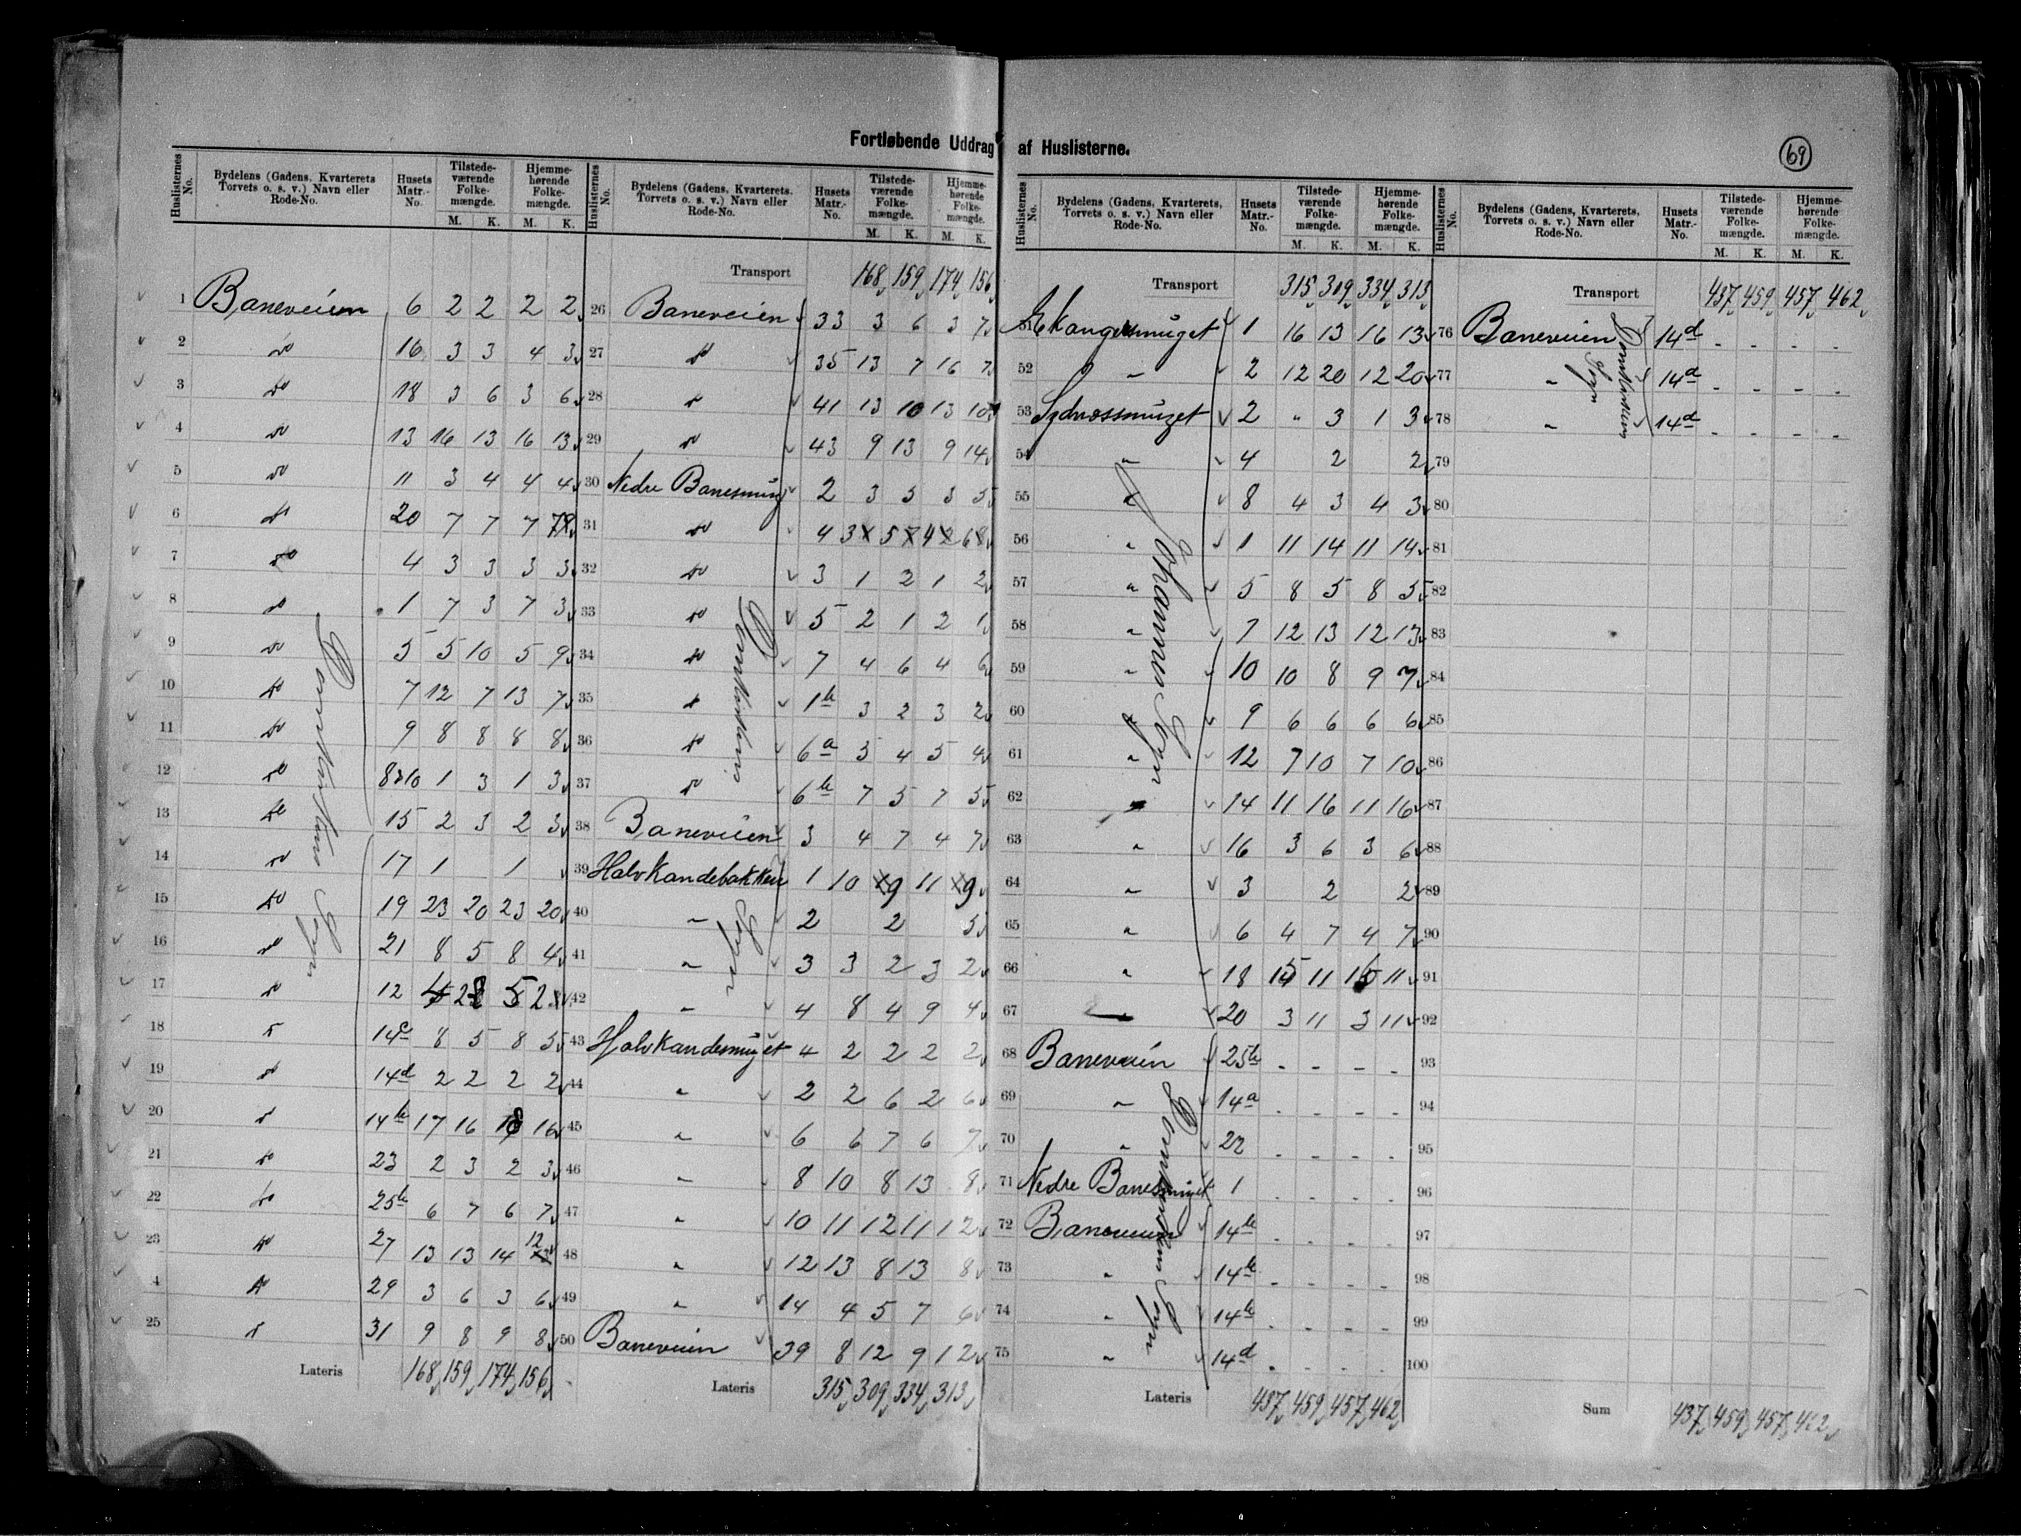 Fortløbende Uddrag af Huslisterne.
69
Huslisternes No. Bydelens (Gadens, Kvarterets Torvets o. s. v.) Navn eller Rode-No. Husets Matr.-No. Tilstedeværende Folkemængde. M. K. Hjemmehørende Folkemængde. M. K.
1 Baneveien 6 2 2 2 2
2 do 16 3 3 4 3
3 do 18 3 6 3 6
4 do 13 16 13 16 13
5 do 11 3 4 4 4
6 do 20 7 7 7
7 do 4 3 3 3 3
8 do 1 7 3 7 3
9 do 5 5 10 5 9
10 do 7 12 7 13 7
11 do 9 8 8 8 8
12 do 8 & 10 1 3 1 3
13 do 15 2 3 2 3
14 do 17 1 1
15 do 19 23 20 23 20
16 do 21 8 5 8 4
17 do 12
18 do 14c 8 5 8 5
19 do 14d 2 2 2 2
20 do 14b 17 16 18 16
21 do 23 2 3 2 3
22 do 25b 6 7 6 7
23 do 27 13 13 14 12
4 do 29 3 6 3 6
25 do 31 9 8 9 8
Domkirkens Sogn
Lateris 168 159 174 156
Huslisternes No. Bydelens (Gadens, Kvarterets, Torvets o. s. v.) Navn eller Rode-No. Husets Matr.-No. Tilstedeværende Folkemængde. M. K. Hjemmehørende Folkemængde. M. K.
Transport 168 159 174 156
26 Baneveien 33 3 6 3 7
27 do 35 13 7 16 7
28 do 41 13 10 13 10
29 do 43 9 13 9 14
30 Nedre Banesmug 2 3 5 3 5
31 do 4 3 5 4 6
32 do 3 1 2 1 2
33 do 5 2 1 2 1
34 do 7 4 6 4 6
35 do 1b 3 2 3 2
36 do 6a 5 4 5 4
37 do 6b 7 5 7 5
38 Baneveien 3 4 7 4 7
39 Halvkandebakken 1 10 9 11 9
40 " 2 2 5
41 " 3 3 2 3 2
42 " 4 8 4 9 4
43 Halvkandesmuget 4 2 2 2 2
44 " 2 2 6 2 6
45 " 6 6 7 6 7
46 " 8 10 8 13 8
47 " 10 11 12 11 12
48 " 12 13 8 13 8
49 " 14 4 5 7 6
50 Baneveien 39 8 12 9 12
Domkirkens Sogn
Lateris 315 309 334 313
Huslisternes No. Bydelens (Gadens, Kvarterets, Torvets o. s. v.) Navn eller Rode-No. Husets Matr.-No. Tilstedeværende Folkemængde. M. K. Hjemmehørende Folkemængde. M. K.
Transport 315 309 334 313
51 1 16 13 16 13
52 " 2 12 20 12 20
53 Sydnæssmuget 2 " 3 1 3
54 " 4 2 2
55 " 8 4 3 4 3
56 " 1 11 14 11 14
57 " 5 8 5 8 5
58 " 7 12 13 12 13
59 " 10 10 8 9 7
60 " 9 6 6 6 6
61 " 12 7 10 7 10
62 " 14 11 16 11 16
63 " 16 3 6 3 6
64 " 3 2 2
65 " 6 4 7 4 7
66 " 18 15 11 15 11
67 " 20 3 11 3 11
Johannes Sogn
68 Baneveien 25b - - - -
69 " 14a - - - -
70 " 22 - - - -
71 Nedre Banesmuget 1 - - - -
72 Baneveien 14b - - - -
73 " 14b - - - -
74 " 14b - - - -
75 " 14d - - - -
Domkirkens Sogn
Lateris 437 459 457 462
Huslisternes No. Bydelens (Gadens, Kvarterets, Torvets o. s. v.) Navn eller Rode-No. Husets Matr.-No. Tilstedeværende Folkemængde. M. K. Hjemmehørende Folkemængde. M. K.
Transport 437 459 457 462
76 Baneveien 14d - - - -
77 " 14d - - - -
78 " 14d - - - -
Domkirkens Sogn
79
80
81
82
83
84
85
86
87
88
89
90
91
92
93
94
95
96
97
98
99
100
Sum 437 459 457 462